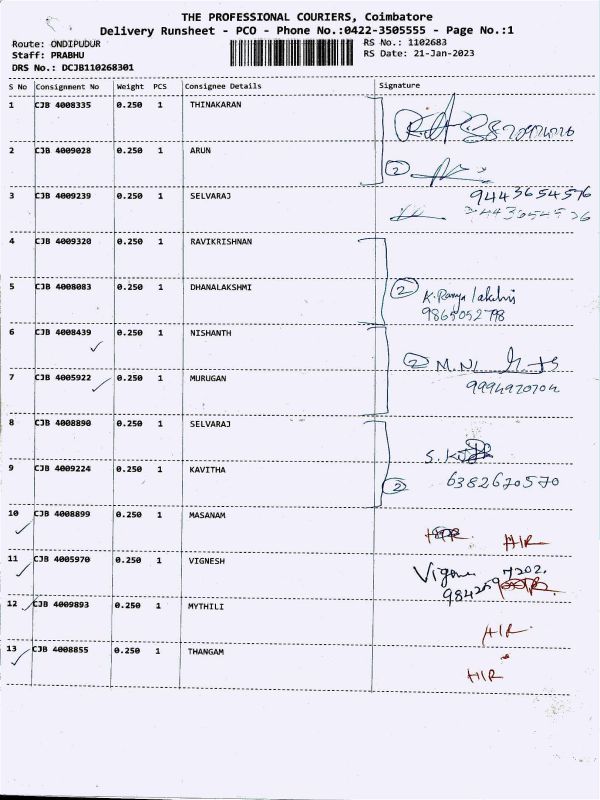 THE PROFESSIONAL COURIERS, Coimbatore
Delivery Runsheet - PCO - Phone No.:0422-3505555 - Page No.:1
Route: ONDIPUDUR
RS No.: 1102683
Staff: PRABHU
RS Date: 21-Jan-2023
DRS No.: DCJB110268301
S No Consignment No Weight PCS Consignee Details Signature
1 CJB 4008335 0.250 1 THINAKARAN
2 CJB 4009028 0.250 1 ARUN
2
3 CJB 4009239 0.250 1 SELVARAJ
9443654576
4 CJB 4009320 0.250 1 RAVIKRISHNAN
5 CJB 4008083 0.250 1 DHANALAKSHMI
2 K. Ramya lakshmi
9865052798
6 CJB 4008439 0.250 1 NISHANTH
2 M.N
7 CJB 4005922 0.250 1 MURUGAN
8 CJB 4008890 0.250 1 SELVARAJ
S.
9 CJB 4009224 0.250 1 KAVITHA
2 6382670570
10 CJB 4008899 0.250 1 MASANAM
HIR
11 CJB 4005970 0.250 1 VIGNESH
7202
984259
12 CJB 4009893 0.250 1 MYTHILI
HIR
13 CJB 4008855 0.250 1 THANGAM
HIR